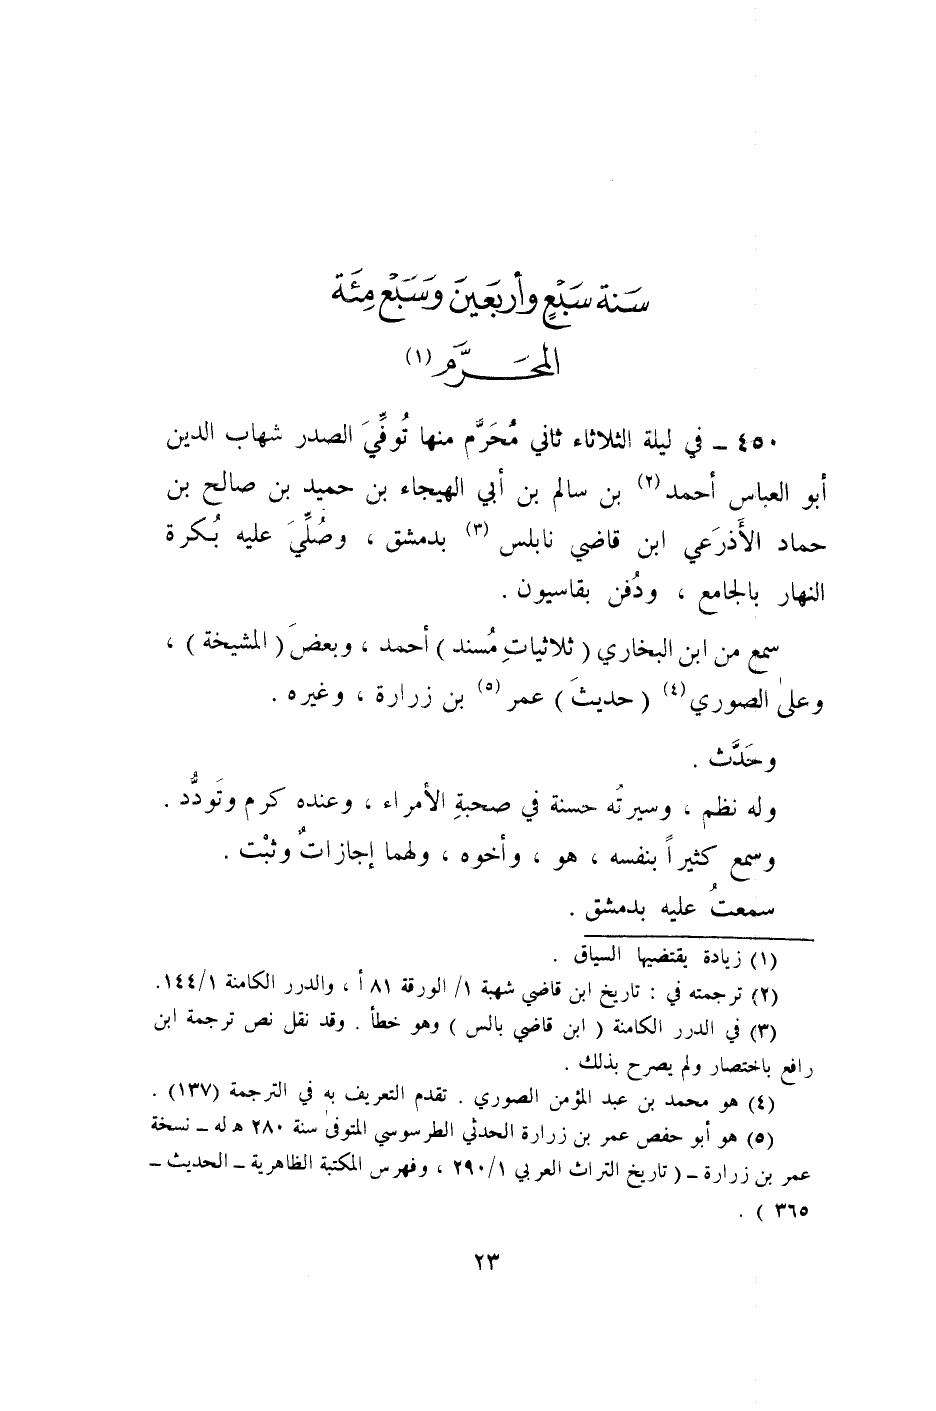 سَنة سَبْعٍ وأربَعينَ وسَبْع مِئَة
المحَرَّم (١)
٤٥٠ ـ في ليلة الثلاثاء ثاني مُحَرَّم منها تُوفِّيَ الصدر شهاب الدين
أبو العباس أحمد (٢) بن سالم بن أبي الهيجاء بن حميد بن صالح بن
حماد الأَذرَعي ابن قاضي نابلس (٣) بدمشق ، وصُلِّيَ عليه بُكرة
النهار بالجامع ، ودُفن بقاسيون .
سمع من ابن البخاري ( ثلاثياتِ مُسند ) أحمد ، وبعضَ ( المشيخة ) ،
وعلىٰ الصوري (٤) ( حديثَ ) عمر (٥) بن زرارة ، وغيره .
وحَدَّث .
وله نظم ، وسيرتُه حسنة في صحبةِ الأمراء ، وعنده كرم وتَودُّد .
وسمع كثيراً بنفسه ، هو ، وأخوه ، ولهما إجازاتٌ وثبْت .
سمعتُ عليه بدمشق .
(١) زيادة يقتضيها السياق .
(٢) ترجمته في : تاريخ ابن قاضي شهبة ١/ الورقة ٨١ أ ، والدرر الكامنة ١/ ١٤٤.
(٣) في الدرر الكامنة ( ابن قاضي بالس ) وهو خطأ . وقد نقل نص ترجمة ابن
رافع باختصار ولم يصرح بذلك .
(٤) هو محمد بن عبد المؤمن الصوري . تقدم التعريف به في الترجمة (١٣٧) .
(٥) هو أبو حفص عمر بن زرارة الحدثي الطرسوسي المتوفىٰ سنة ٢٨٠ ه له ـ نسخة
عمر بن زرارة ـ ( تاريخ التراث العربي ١/ ٢٩٠ ، وفهرس المكتبة الظاهرية ـ الحديث ـ
٣٦٥ ) .
٢٣